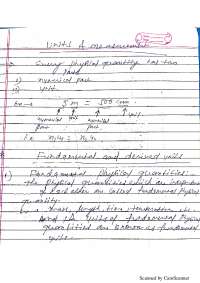 Units & measurement
Every physical quantity has two
part
i) numerical part
ii) unit.
Ex → 5 m = 500 cm
unit
numerical unit numerical
part part
n₁u₁ = n₂u₂
Fundamental and derived units
1) Fundamental physical quantities:-
the physical quantities which are independent
of each other are called fundamental physical
quantity.
mass, length, time, temperature etc.
and the units of fundamental physical
quantities are known as fundamental
units.
Scanned by CamScanner